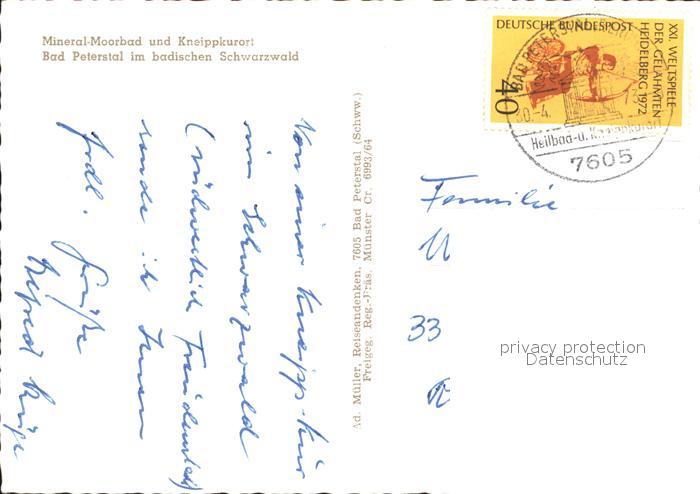 Mineral-Moorbad und Kneippkurort
Bad Peterstal im badischen Schwarzwald
DEUTSCHE BUNDESPOST
XXI. WELTSPIELE
DER GELÄHMTEN
HEIDELBERG 1972
40
BAD PETERSTAL
30.-4.
Heilbad-u. Kneippkurort
7605
Von einer Kneipp-Kur
im Schwarzwald
(südwestlich Freudenstadt)
sende ich Ihnen
frdl. Grüße
Alfred Krüger
Ad. Müller, Reiseandenken, 7605 Bad Peterstal (Schww.)
Freigeg. Reg.-Präs. Münster Cr. 6993/64
Familie
33
privacy protection
Datenschutz